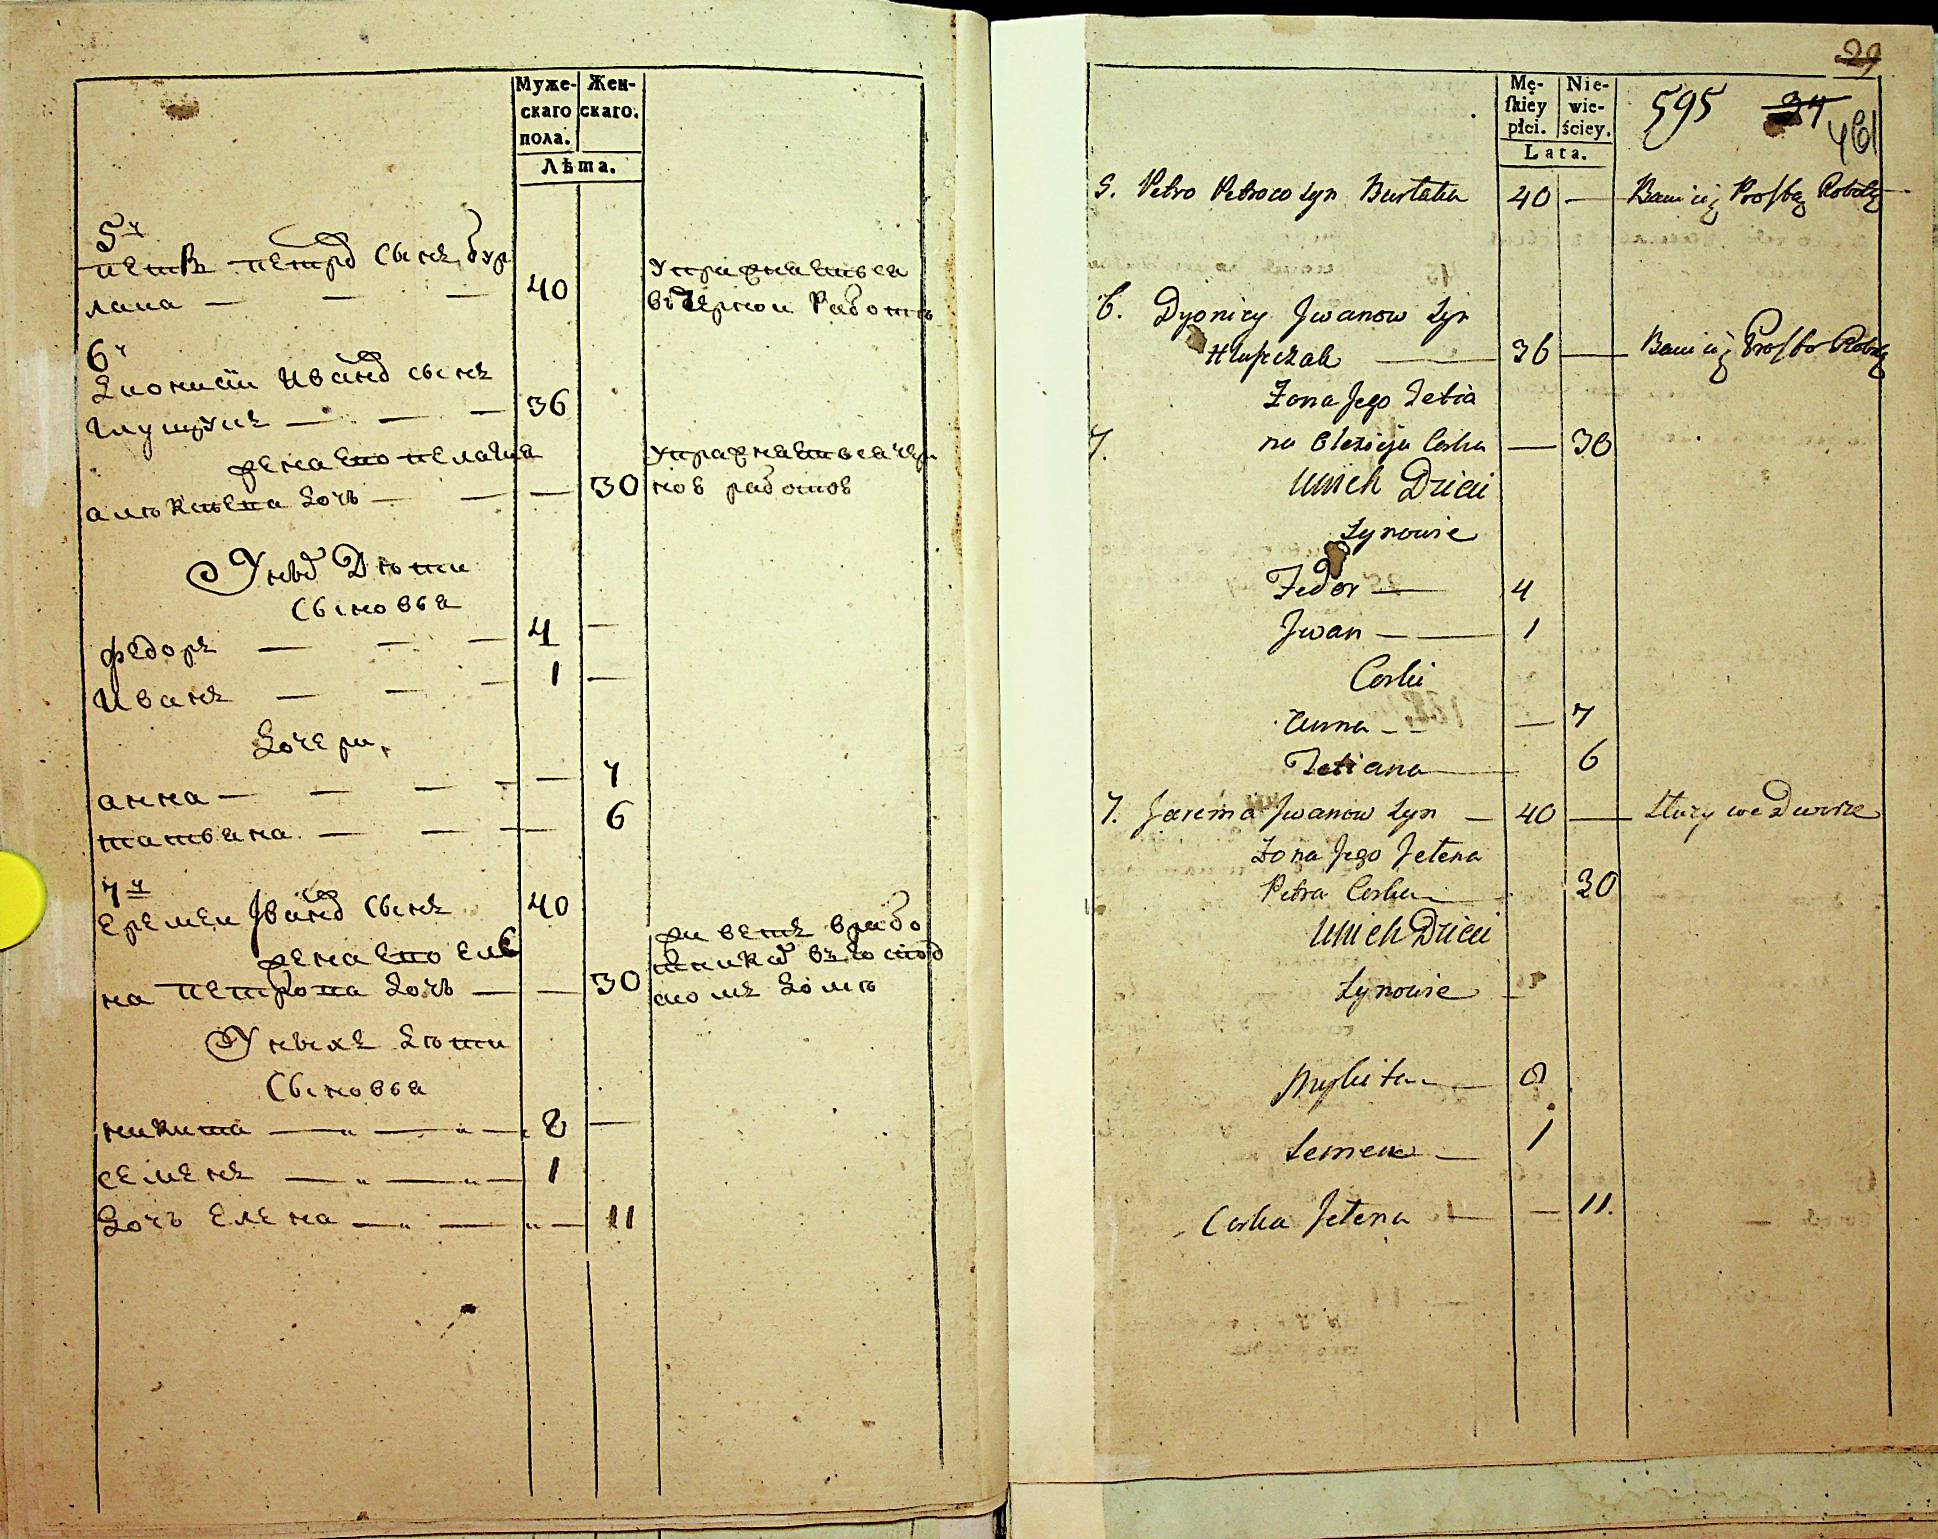 Муже-
скаго
пола.
Жен-
скаго.
Лѣта.
5й
петръ петров сынъ бур
лака — — — 40
Упражняется
въ черной работѣ
6й
Дионисии Иванов сынъ
— — — 36
жена его пелагия
алексиева дочь — — — 30
Упражняется в чер
ной работѣ
У ных Дѣти
Сыновья
Федоръ — — — 4 —
Иванъ — — — 1 —
Дочери,
анна — — — — — 7
татьяна — — — 6
7й
Еремеи Иванов сынъ 40
жена его еле
на петрова дочь — — 30
въ господ
ском доме
У ныхъ дѣти
Сыновья
никита — „ — „ — 8 —
семенъ — „ — „ — 1
Дочь елена — „ — „ — 11
29
Mę-
ſkiey
płci.
Nie-
wie-
ściey.
Lata.
595 34
461
5. Petro Petrow Syn Burłaka 40 — Bawi się Prostą Robotą
6. Dyonizy Jwanow Syn
36 — Bawi się Prosto Robotą
Żona Jego Pelia
7. na Olexieja Corka — 30
U nich Dzieci
Synowie
Fedor — 4
Jwan — — 1
Corki
Anna — — 7
Tetiana — 6
7. Jarema Jwanow Syn — 40 — Służy we Dworze
Żona Jego Jelena
Petra Corka — 30
U nich Dzieci
Synowie
Mykita — 8
Semen — 1
Corka Jelena — — 11.